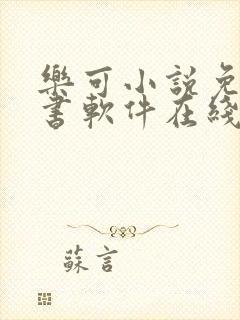 樂可小說免
書軟件在綫
蘇言